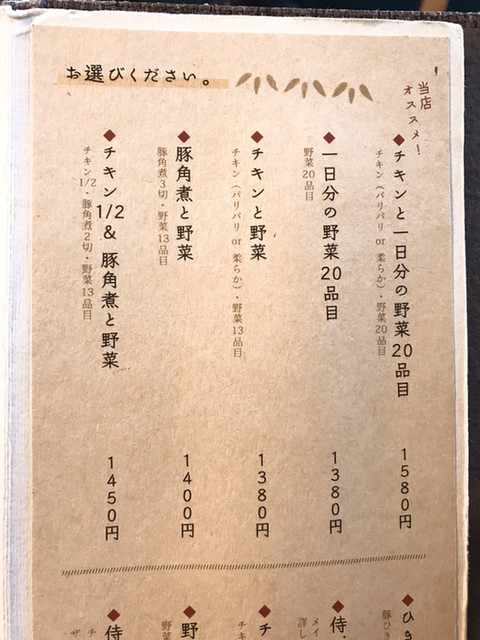 お選びください。
当店
オススメ!
◆チキンと一日分の野菜20品目
チキン(パリパリ or 柔らか)・野菜20品目
1580円
◆一日分の野菜20品目
野菜20品目
1380円
◆チキンと野菜
チキン(パリパリ or 柔らか)・野菜13品目
1380円
◆豚角煮と野菜
豚角煮3切・野菜13品目
1400円
◆チキン1/2 & 豚角煮と野菜
チキン1/2・豚角煮2切・野菜13品目
1450円
◆ひき
豚ひき
◆侍
メイ
詳し
◆チ
チキ
◆野
野菜
◆侍
チ
ザ